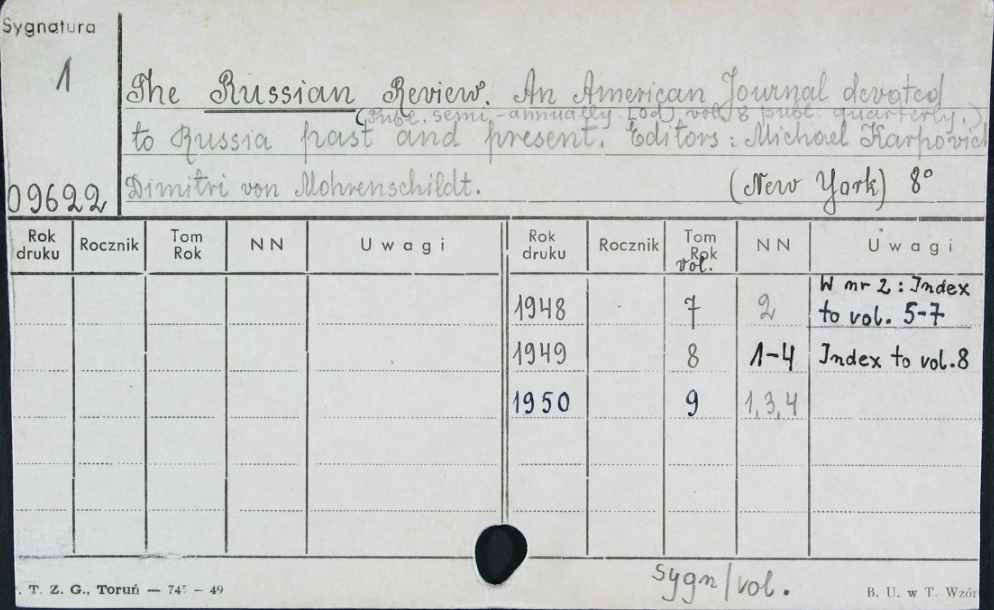 Sygnatura
1
The Russian Review. An American Journal devoted
(Publ. semi-annually. [od] vol. 8 publ. quarterly.)
to Russia past and present. Editors: Michael Karpovich
09622 Dimitri von Mohrenschildt. (New York) 8°
Rok druku Rocznik Tom Rok NN Uwagi Rok druku Rocznik Tom Rok vol. NN Uwagi
1948 7 2 W nr 2: Index to vol. 5-7
1949 8 1-4 Index to vol. 8
1950 9 1, 3, 4
Sygn/vol.
T. Z. G., Toruń — 745 — 49 B. U. w T. Wzór